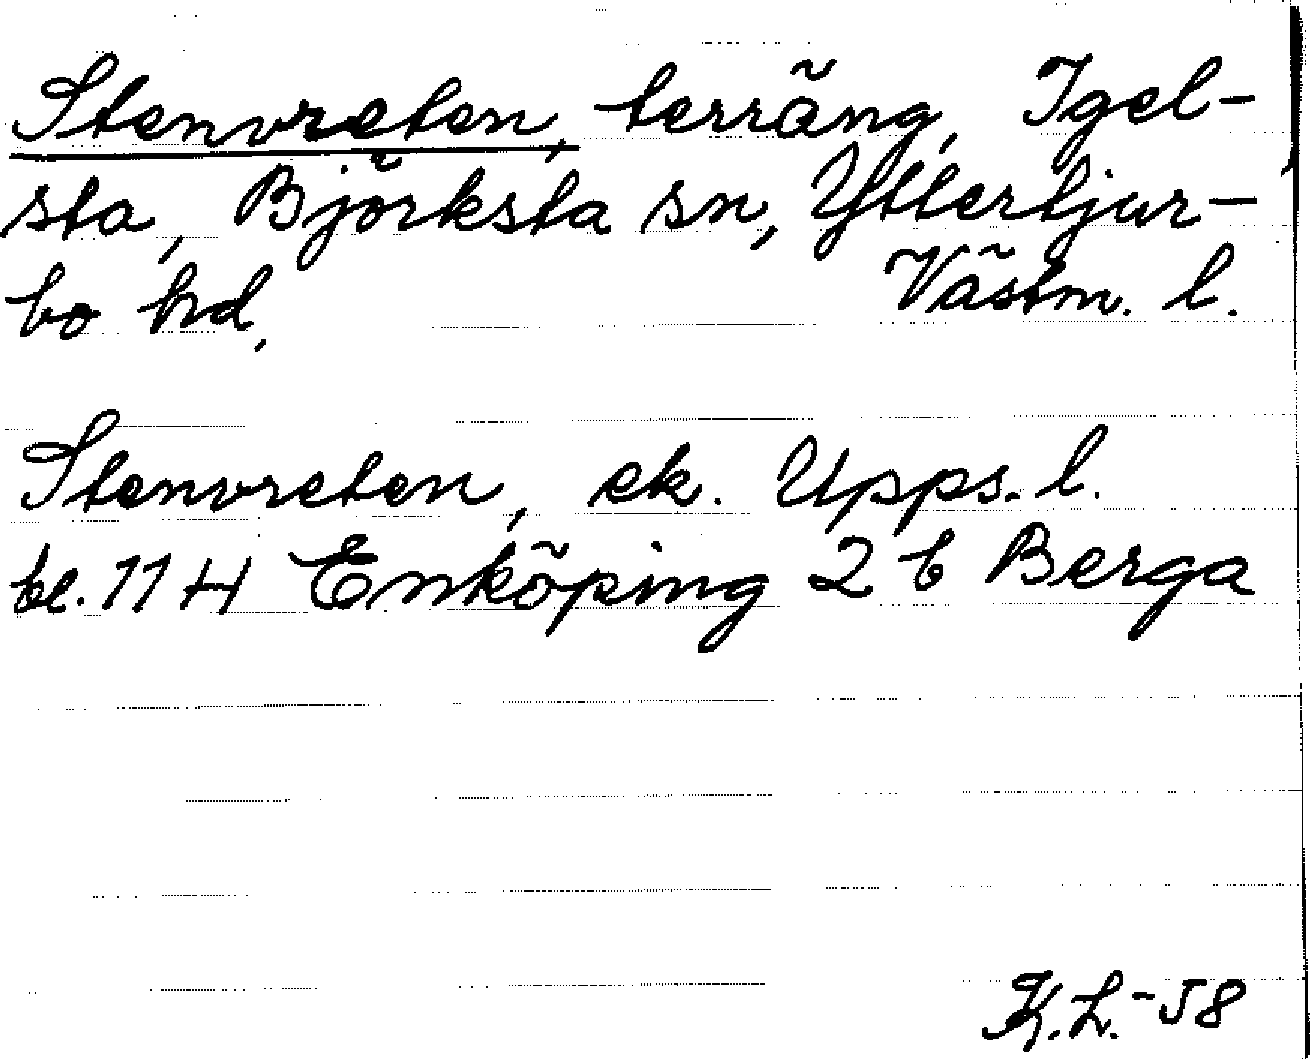 Stenvreten, terräng, Igel-
sta, Björksta sn, Yttertjur-
bo hd, Västm. l.
Stenvreten, ek. Upps. l.
bl. 11 H Enköping 2 b Berga
K.L.-58